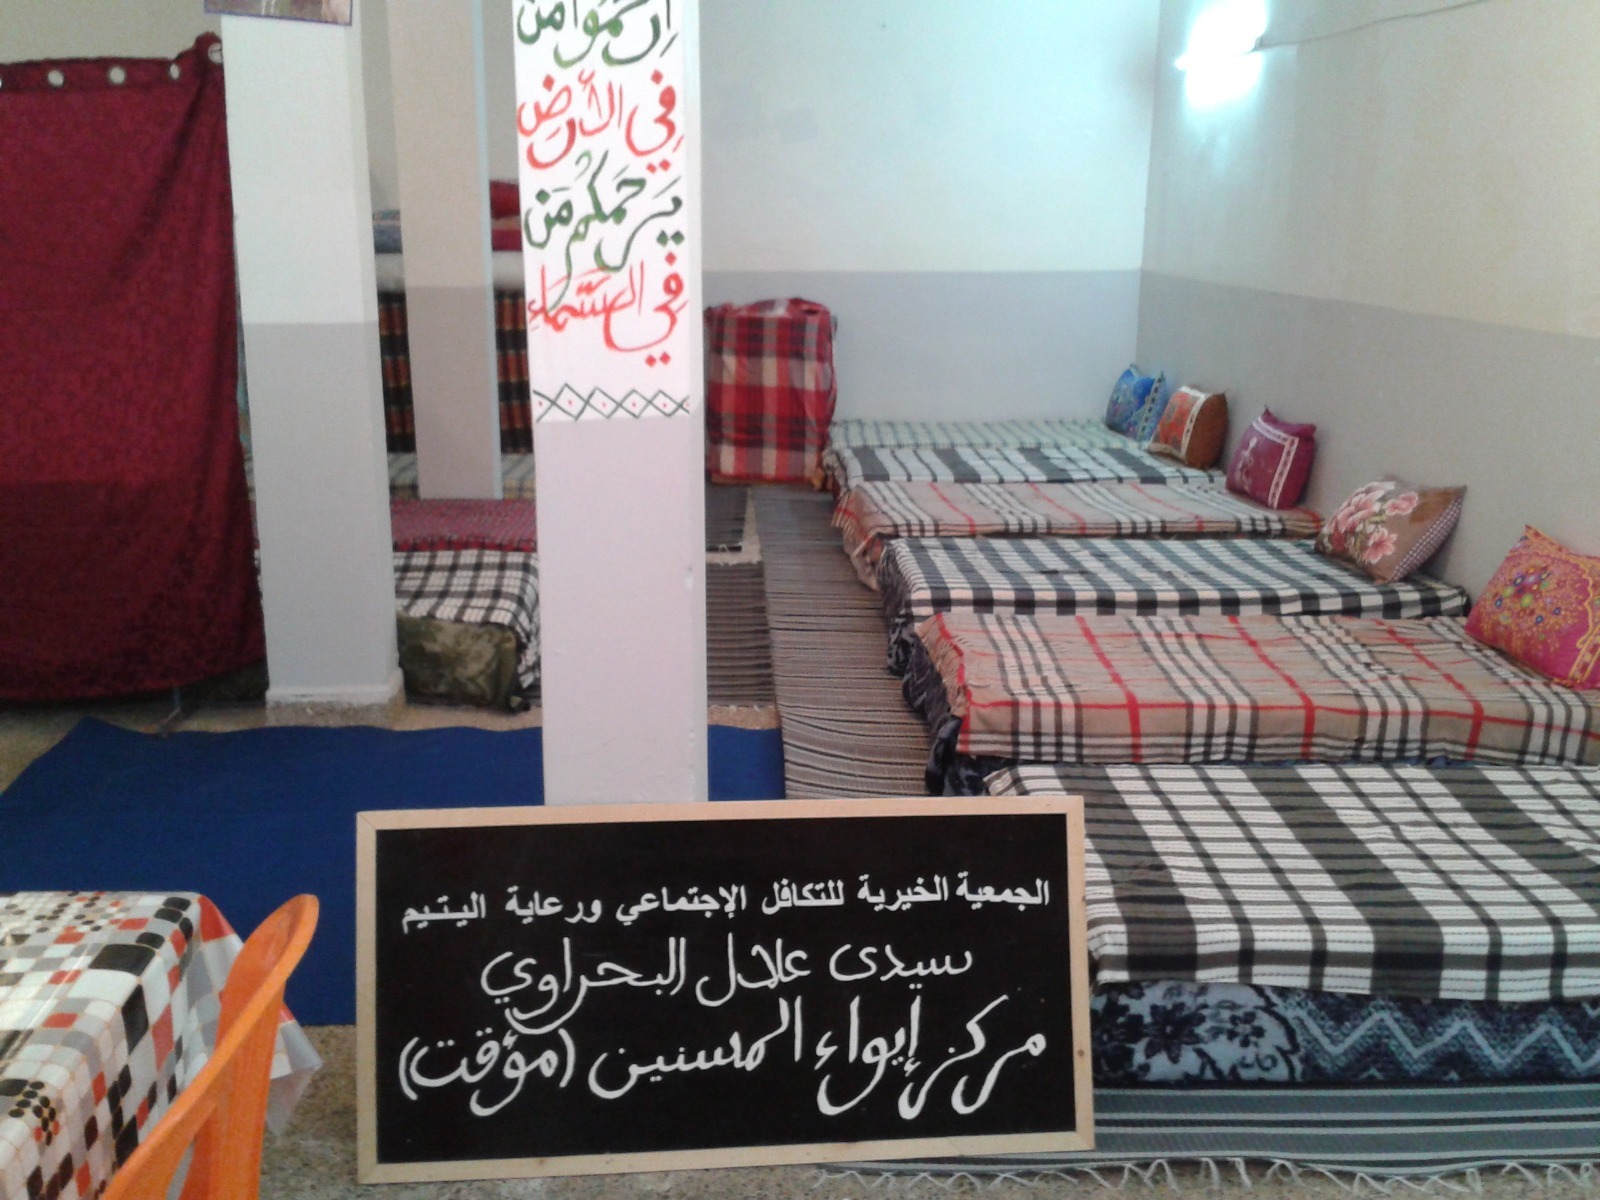 اِرْحَمُوا مَنْ
فِي الأَرْضِ
يَرْحَمُكُمْ مَنْ
فِي السَّمَاءِ
الجمعية الخيرية للتكافل الإجتماعي ورعاية اليتيم
سيدي علال البحراوي
مركز إيواء المسنين (مؤقت)